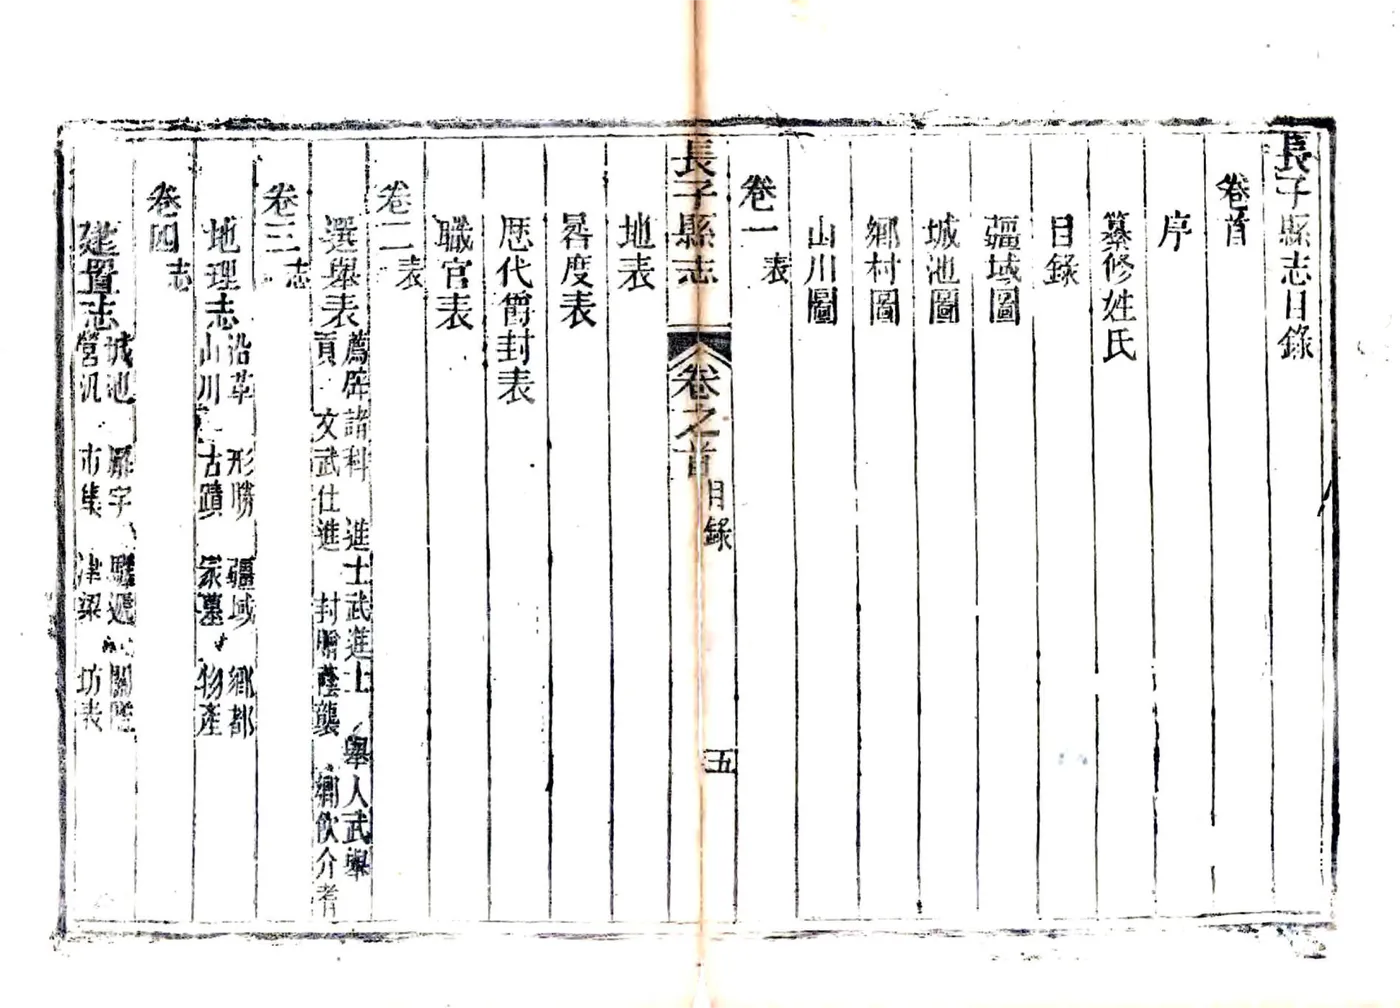 長子縣志目錄
卷首
序
纂修姓氏
目錄
疆域圖
城池圖
鄉村圖
山川圖
卷一 表
長子縣志 卷之首 目錄 五
地表
晷度表
歷代爵封表
職官表
卷二 表
選舉表
薦辟諸科 進士武進士 舉人武舉
貢 文武仕進 封贈蔭襲 鄉飲介耆
卷三 志
地理志
沿革 形勝 疆域 鄉都
山川 古蹟 冢墓 物產
卷四 志
建置志
城池 廨宇 驛遞 關隘
營汛 市集 津梁 坊表